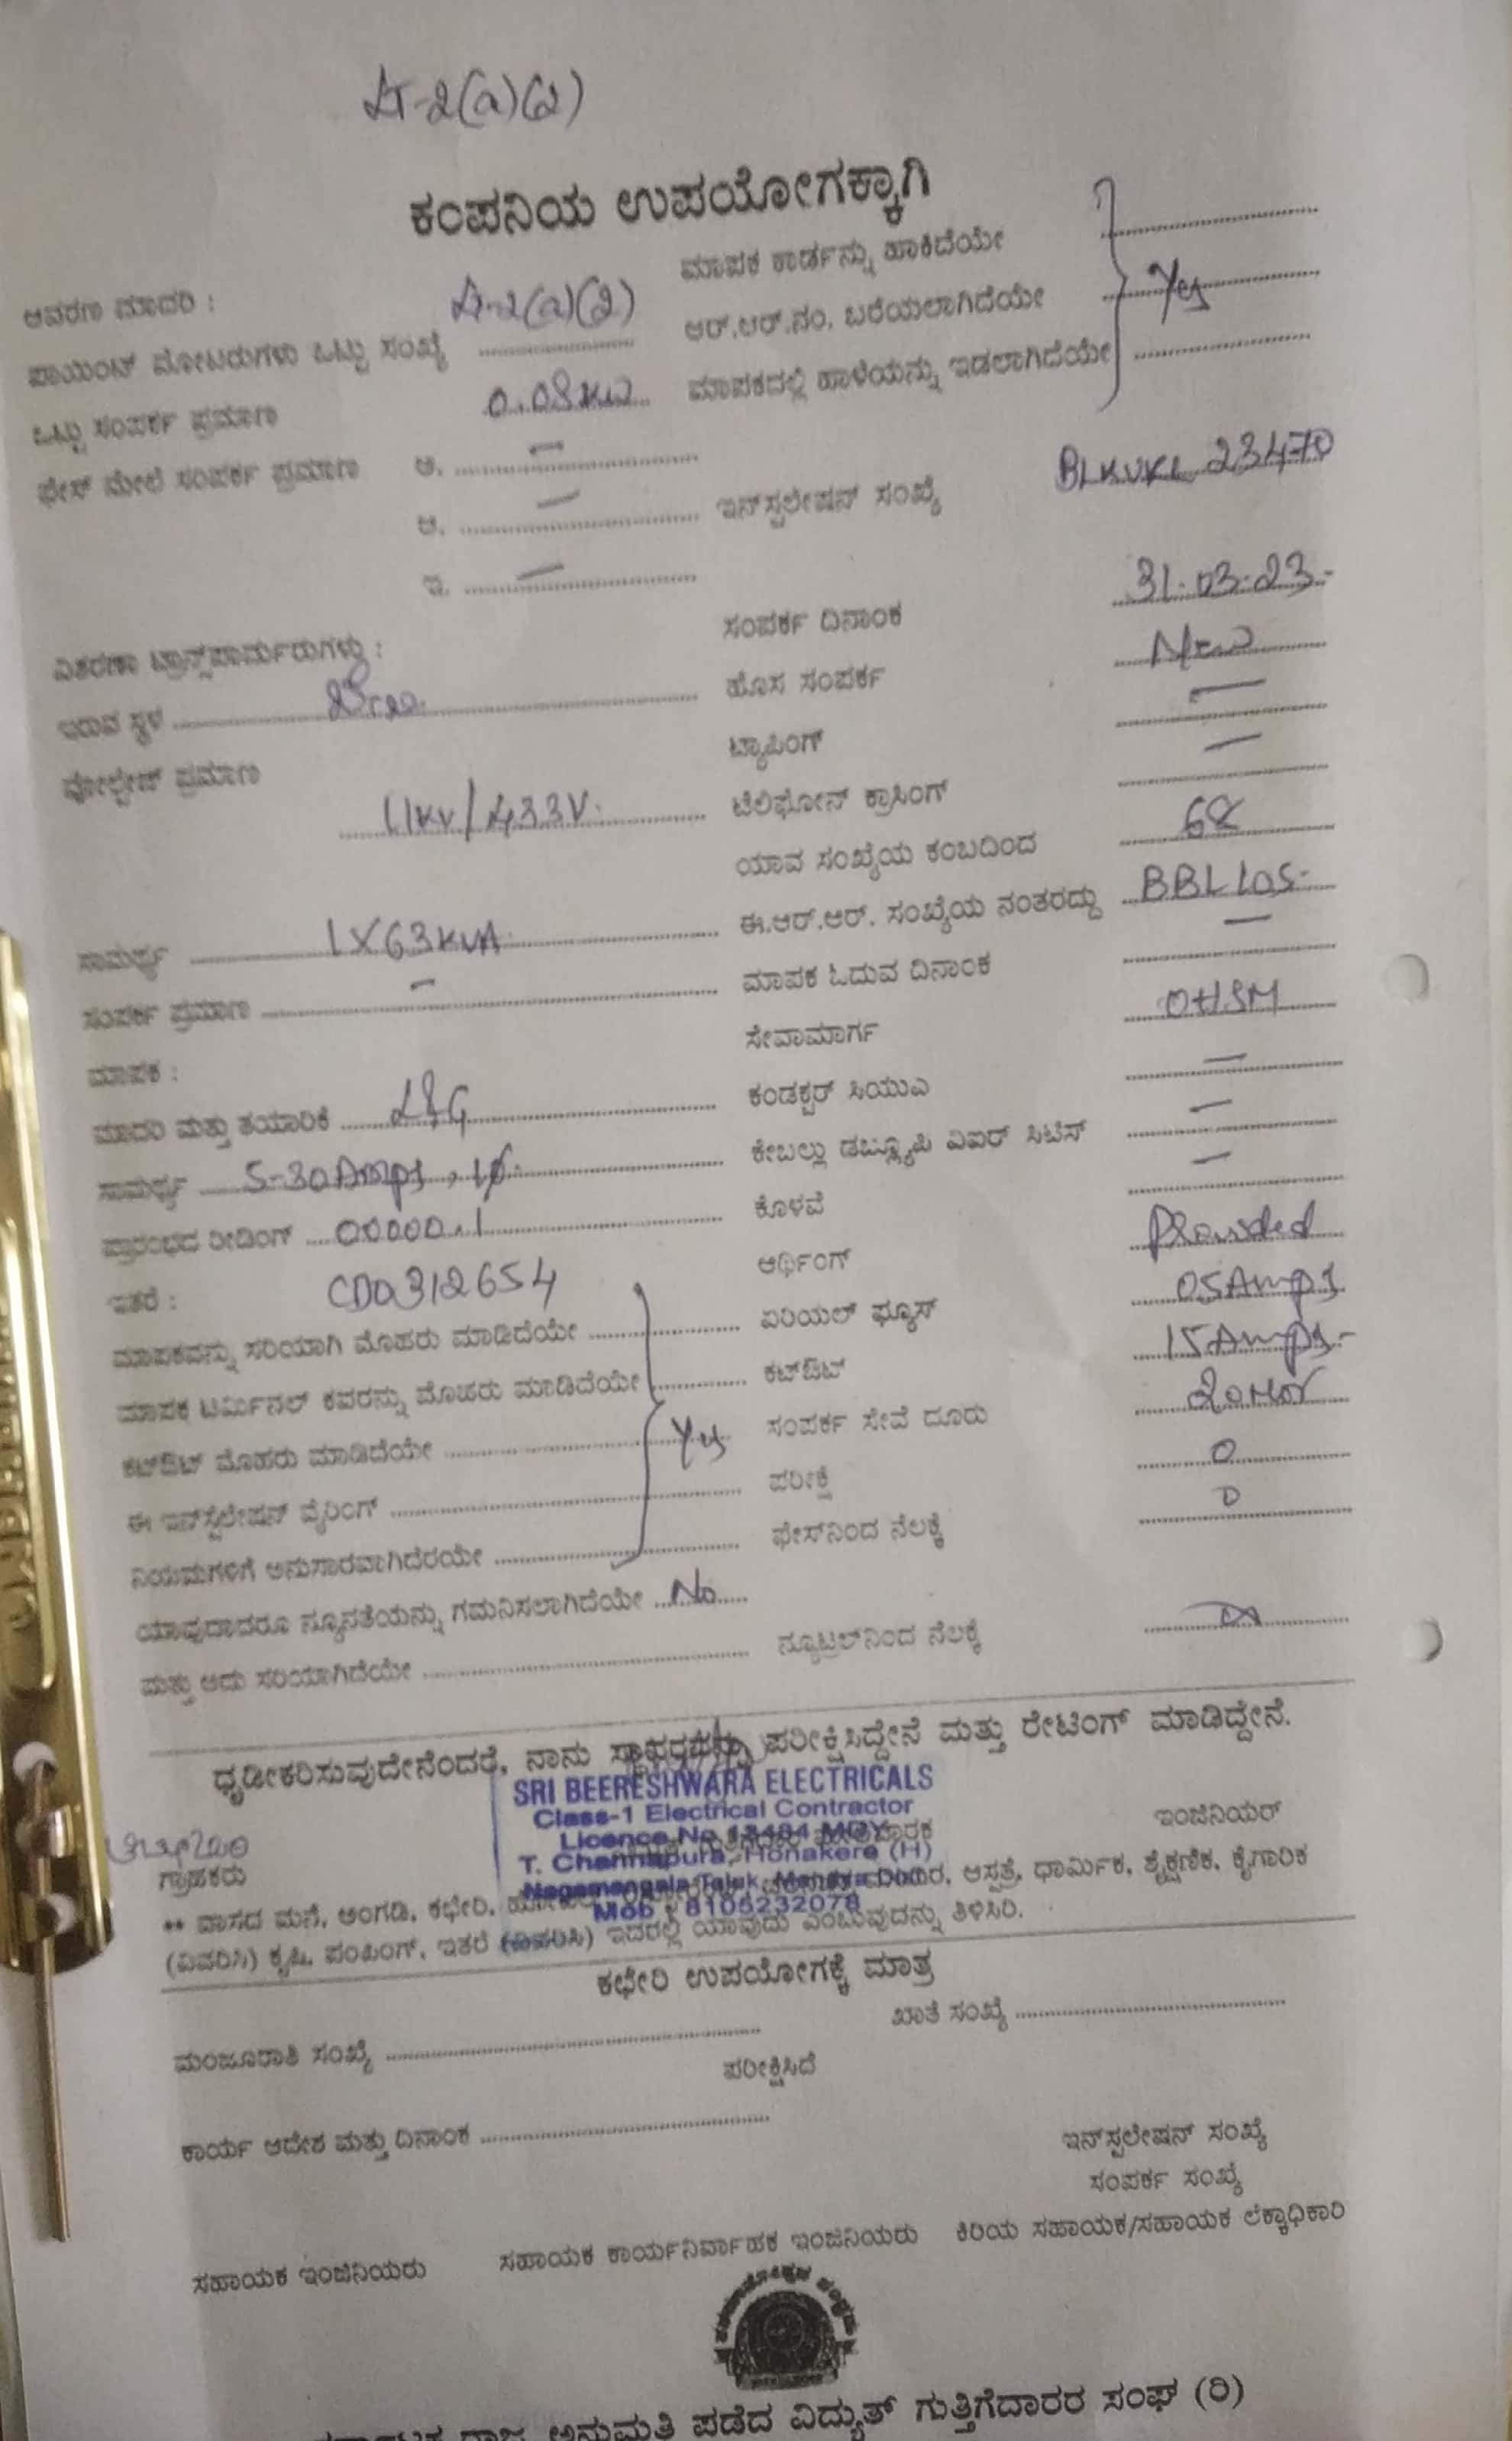 LT-2(a)(2)
ಕಂಪನಿಯ ಉಪಯೋಗಕ್ಕಾಗಿ
ಆವರಣ ಮಾದರಿ : LT-2(a)(2) ಮಾಪಕ ಕಾರ್ಡನ್ನು ಹಾಕಿದೆಯೇ
ಪಾಯಿಂಟ್ ಮೋಟರುಗಳು ಒಟ್ಟು ಸಂಖ್ಯೆ ಆರ್.ಆರ್.ನಂ. ಬರೆಯಲಾಗಿದೆಯೇ Yes
ಒಟ್ಟು ಸಂಪರ್ಕ ಪ್ರಮಾಣ 0.08KW ಮಾಪಕದಲ್ಲಿ ಹಾಳೆಯನ್ನು ಇಡಲಾಗಿದೆಯೇ
ಫೇಸ್ ಮೇಲೆ ಸಂಪರ್ಕ ಪ್ರಮಾಣ ಅ. –
ಆ. – ಇನ್‌ಸ್ಟಲೇಷನ್ ಸಂಖ್ಯೆ BLKVKL 23470
ಇ. –
ಸಂಪರ್ಕ ದಿನಾಂಕ 31.03.23
ವಿತರಣಾ ಟ್ರಾನ್ಸ್‌ಫಾರ್ಮರುಗಳು :
ಇರುವ ಸ್ಥಳ ಹೊಸ ಸಂಪರ್ಕ New
ಟ್ಯಾಪಿಂಗ್ –
ವೋಲ್ಟೇಜ್ ಪ್ರಮಾಣ 11KV/433V. ಟೆಲಿಫೋನ್ ಕ್ರಾಸಿಂಗ್ –
ಯಾವ ಸಂಖ್ಯೆಯ ಕಂಬದಿಂದ
ಸಾಮರ್ಥ್ಯ 1X63KVA ಈ.ಆರ್.ಆರ್. ಸಂಖ್ಯೆಯ ನಂತರದ್ದು BBL105
ಸಂಪರ್ಕ ಪ್ರಮಾಣ – ಮಾಪಕ ಓದುವ ದಿನಾಂಕ –
ಮಾಪಕ : ಸೇವಾಮಾರ್ಗ OHSM
ಮಾದರಿ ಮತ್ತು ತಯಾರಿಕೆ L&G ಕಂಡಕ್ಟರ್ ಸಿಯುಎ –
ಸಾಮರ್ಥ್ಯ 5-30Amps, 1ø. ಕೇಬಲ್ಲು ಡಬ್ಲ್ಯೂಪಿ ವಿಐರ್ ಸಿಟಿಸ್ –
ಪ್ರಾರಂಭದ ರೀಡಿಂಗ್ 00000.1 ಕೊಳವೆ –
ಇತರೆ : CD0312654 ಆರ್ಥಿಂಗ್ Provided
ಮಾಪಕವನ್ನು ಸರಿಯಾಗಿ ಮೊಹರು ಮಾಡಿದೆಯೇ ಏರಿಯಲ್ ಫ್ಯೂಸ್ 05Amps
ಮಾಪಕ ಟರ್ಮಿನಲ್ ಕವರನ್ನು ಮೊಹರು ಮಾಡಿದೆಯೇ ಕಟ್‌ಔಟ್ 15Amps
ಕಟ್‌ಔಟ್ ಮೊಹರು ಮಾಡಿದೆಯೇ Yes ಸಂಪರ್ಕ ಸೇವೆ ದೂರು
ಈ ಇನ್‌ಸ್ಟಲೇಷನ್ ವೈರಿಂಗ್ ಪರೀಕ್ಷೆ 0
ನಿಯಮಗಳಿಗೆ ಅನುಸಾರವಾಗಿದೆರಯೇ ಫೇಸ್‌ನಿಂದ ನೆಲಕ್ಕೆ 0
ಯಾವುದಾದರೂ ನ್ಯೂನತೆಯನ್ನು ಗಮನಿಸಲಾಗಿದೆಯೇ No
ಮತ್ತು ಅದು ಸರಿಯಾಗಿದೆಯೇ ನ್ಯೂಟ್ರಲ್‌ನಿಂದ ನೆಲಕ್ಕೆ
ಧೃಡೀಕರಿಸುವುದೇನೆಂದರೆ, ನಾನು ಸ್ಥಾವರವನ್ನು ಪರೀಕ್ಷಿಸಿದ್ದೇನೆ ಮತ್ತು ರೇಟಿಂಗ್ ಮಾಡಿದ್ದೇನೆ.
SRI BEERESHWARA ELECTRICALS
Class-1 Electrical Contractor
Licence No 13484 MDY
T. Channapura, Honakere (H)
Nagamangala Taluk, Mandya Dist
Mob : 8105232078
ಗ್ರಾಹಕರು ಇಂಜಿನಿಯರ್
** ವಾಸದ ಮನೆ, ಅಂಗಡಿ, ಕಛೇರಿ, ಆಸ್ಪತ್ರೆ, ಧಾರ್ಮಿಕ, ಶೈಕ್ಷಣಿಕ, ಕೈಗಾರಿಕ
(ವಿವರಿಸಿ) ಕೃಷಿ, ಪಂಪಿಂಗ್, ಇತರೆ (ವಿವರಿಸಿ) ಇದರಲ್ಲಿ ಯಾವುದು ಎಂಬುವುದನ್ನು ತಿಳಿಸಿರಿ.
ಕಛೇರಿ ಉಪಯೋಗಕ್ಕೆ ಮಾತ್ರ
ಮಂಜೂರಾತಿ ಸಂಖ್ಯೆ ಖಾತೆ ಸಂಖ್ಯೆ
ಪರೀಕ್ಷಿಸಿದೆ
ಕಾರ್ಯ ಆದೇಶ ಮತ್ತು ದಿನಾಂಕ
ಇನ್‌ಸ್ಟಲೇಷನ್ ಸಂಖ್ಯೆ
ಸಂಪರ್ಕ ಸಂಖ್ಯೆ
ಸಹಾಯಕ ಇಂಜಿನಿಯರು ಸಹಾಯಕ ಕಾರ್ಯನಿರ್ವಾಹಕ ಇಂಜಿನಿಯರು ಕಿರಿಯ ಸಹಾಯಕ/ಸಹಾಯಕ ಲೆಕ್ಕಾಧಿಕಾರಿ
ಅನುಮತಿ ಪಡೆದ ವಿದ್ಯುತ್ ಗುತ್ತಿಗೆದಾರರ ಸಂಘ (ರಿ)